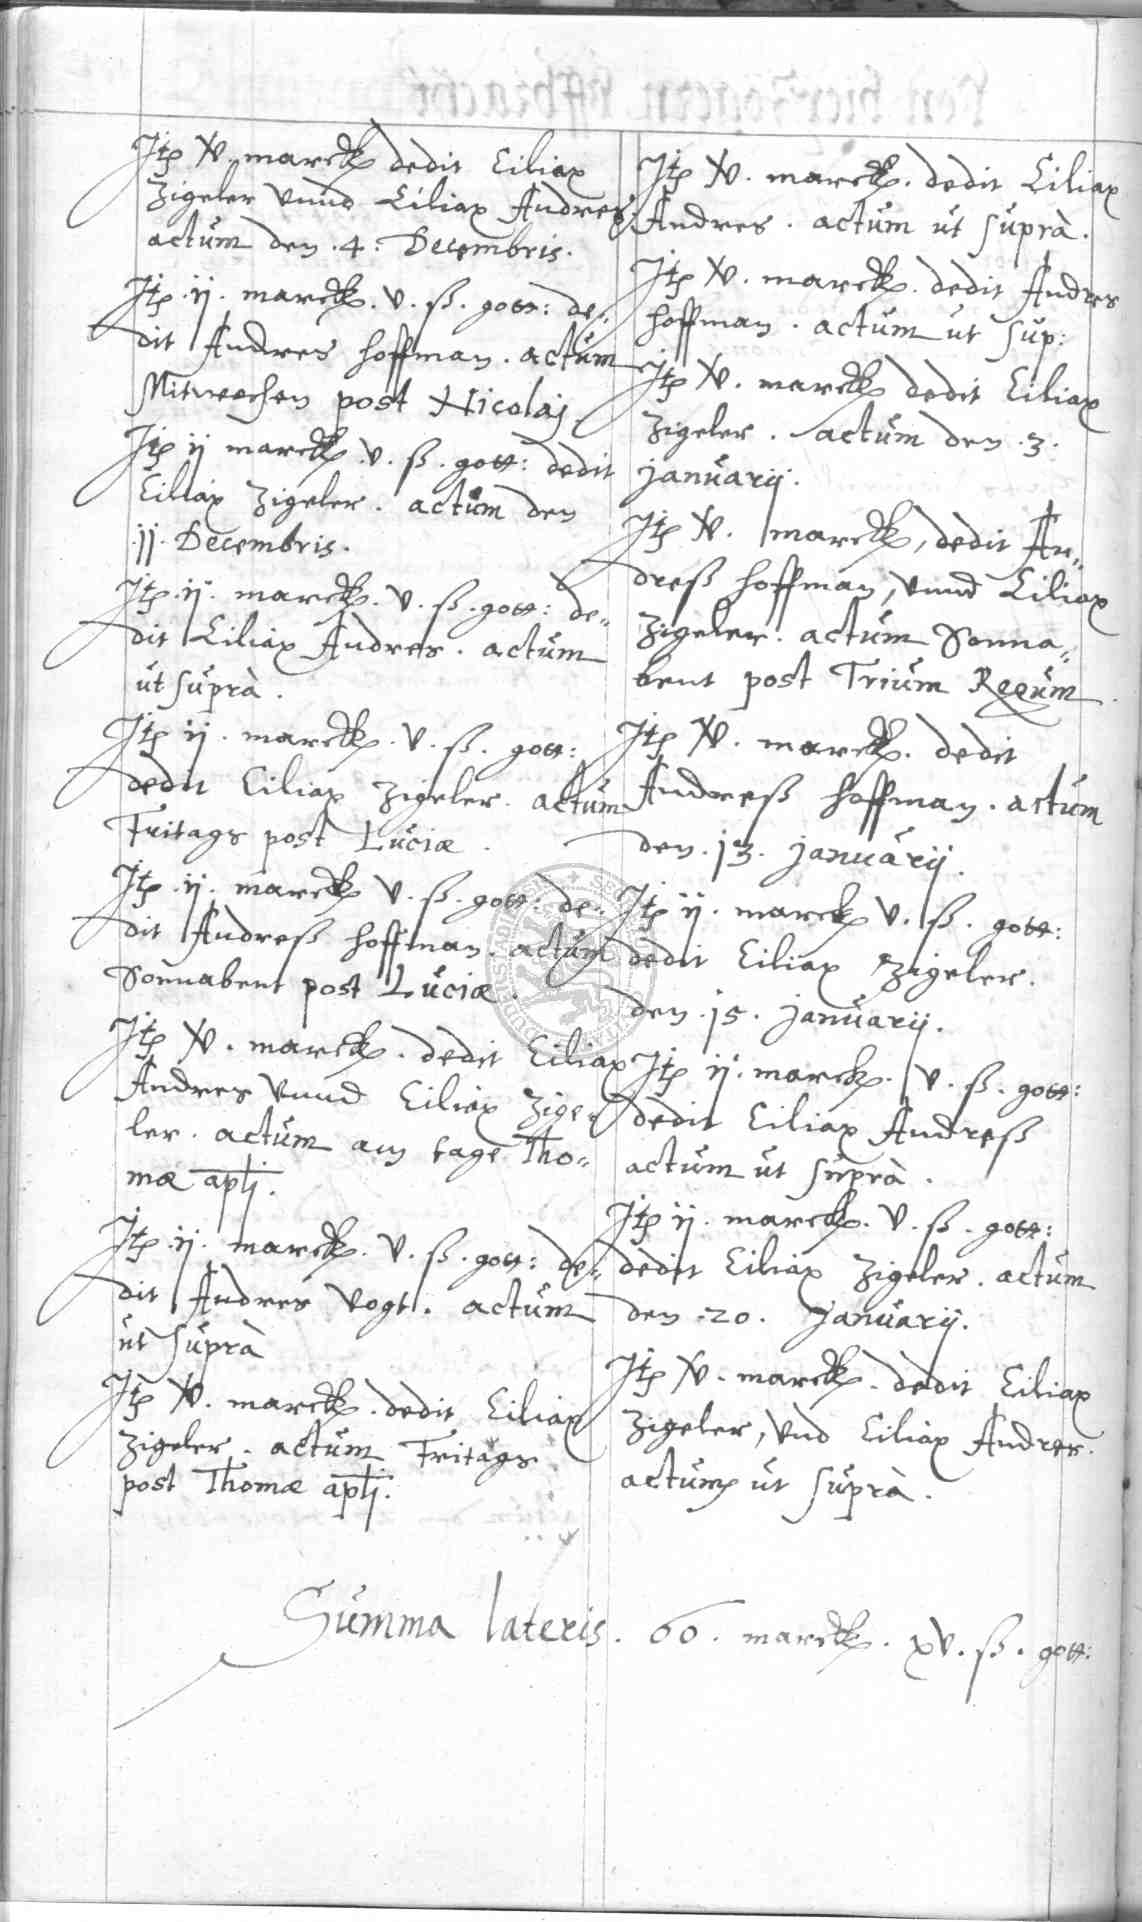 Itē V̶. marck dedit Ciliax
Zigeler vnnd Ciliax Andres
actum den .4: Decembris.
Itē .ij. marck. v. ß. gott: de=
dit Andres hoffman. actum
Mitweechen post Nicolaj
Itē ij marck .v. ß. gott: dedit
Ciliax Zigeler. actum den
.jj. Decembris.
Itē .ij. marck. v. ß. gott: de=
dit Ciliax Andres. actum
ut suprà.
Itē ij. marck. v. ß. gott:
dedit Ciliax Zigeler. actum
Fritags post Luciæ.
Itē .ij. marck v. ß. gott: de=
dit Andreß hoffman. actum
Sonnabent post Luciæ.
Itē V̶. marck. dedit Ciliax
Andres vnnd Ciliax Zige=
ler. actum am tage Tho=
mæ apli.
Itē .ij. marck. v. ß. gott: de=
dit Andres Vogt. actum
ut suprà
Itē V̶. marck. dedit Ciliax
Zigeler. actum Fritags
post Thomæ apli.
Itē V̶. marck. dedit Ciliax
Andres. actum ut suprà.
Itē V̶. marck. dedit Andres
hoffman. actum ut sup:
Itē V̶. marck dedit Ciliax
Zigeler. actum den .3.
januarij.
Itē V̶. marck, dedit An=
dreß hoffman, vnnd Ciliax
Zigeler. actum Sonna=
bent post Trium Regum.
Itē V̶. marck. dedit
Andreß hoffman. actum
den .13. januarij.
Itē ij. marck v. ß. gott:
dedit Ciliax Zigeler.
den .15. januarij.
Itē ij. marck. v. ß. gott:
dedit Ciliax Andreß
actum ut suprà.
Itē ij. marck. v. ß. gott:
dedit Ciliax Zigeler. actum
den .20. januarij.
Itē V̶. marck. dedit Ciliax
Zigeler, vnd Ciliax Andres.
actum ut suprà.
Summa lateris. 60. marck. xv. ß. gott: